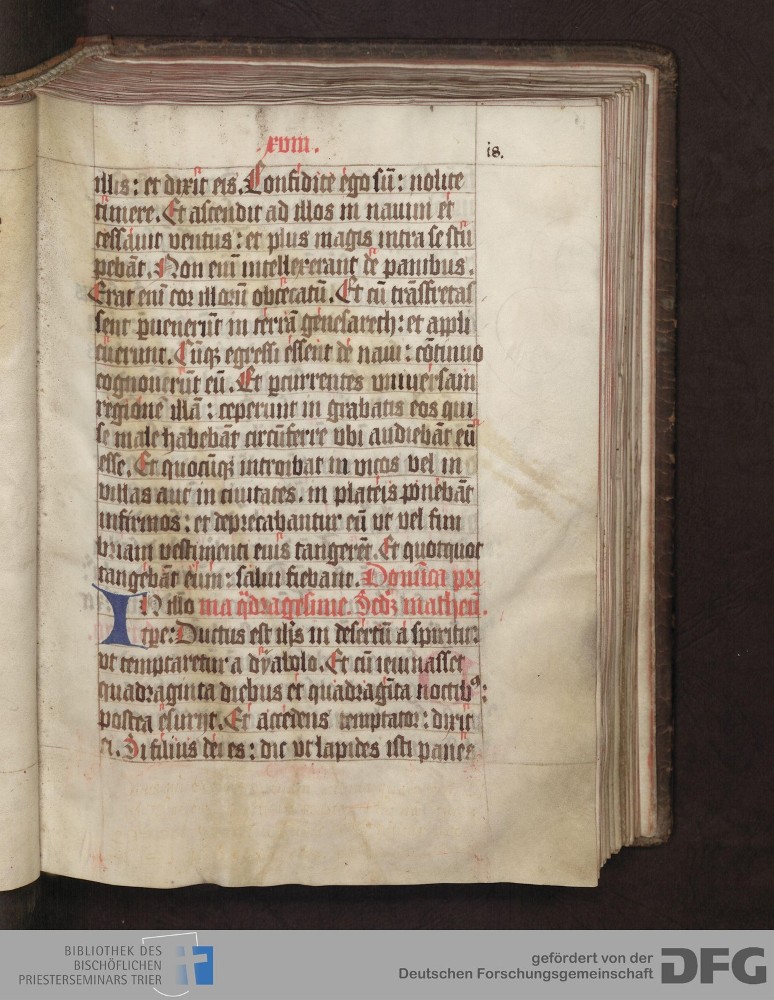 .xviii.
18.
illis: et dixit eis. Confidite ego sū: nolite
timere. Et ascendit ad illos in nauim et
cessauit ventus: et plus magis intra se stu
pebāt. Non eni intellexerant de panibus.
Erat eni cor illorū obcecatū. Et cū trāsfretas
sent puenerūt in terrā genesareth: et appli
cuerunt. Cūqz egressi essent de naui: cōtinuo
cognouerūt eū. Et pcurrentes vniuersam
regionē illā: ceperunt in grabatis eos qui
se male habebāt circūferre vbi audiebāt eū
esse. Et quocūqz introibat in vicos vel in
villas aut in ciuitates. in plateis ponebāt
infirmos: et deprecabantur eū vt vel fim
briam vestimenti euis tangerēt. Et quotquot
tangebāt eum: salui fiebant. Domīca pri
IN illo ma qdragesime. Scdz matheū.
tpe: Ductus est ihs in desertū a spiritu:
vt temptaretur a dyabolo. Et cū ieiunasset
quadraginta diebus et quadragīta noctibꝰ:
postea esuriit. Et accedens temptator: dixit
ei. Si filius dei es: dic vt lapides isti panes
BIBLIOTHEK DES
BISCHÖFLICHEN
PRIESTERSEMINARS TRIER
gefördert von der
Deutschen Forschungsgemeinschaft DFG